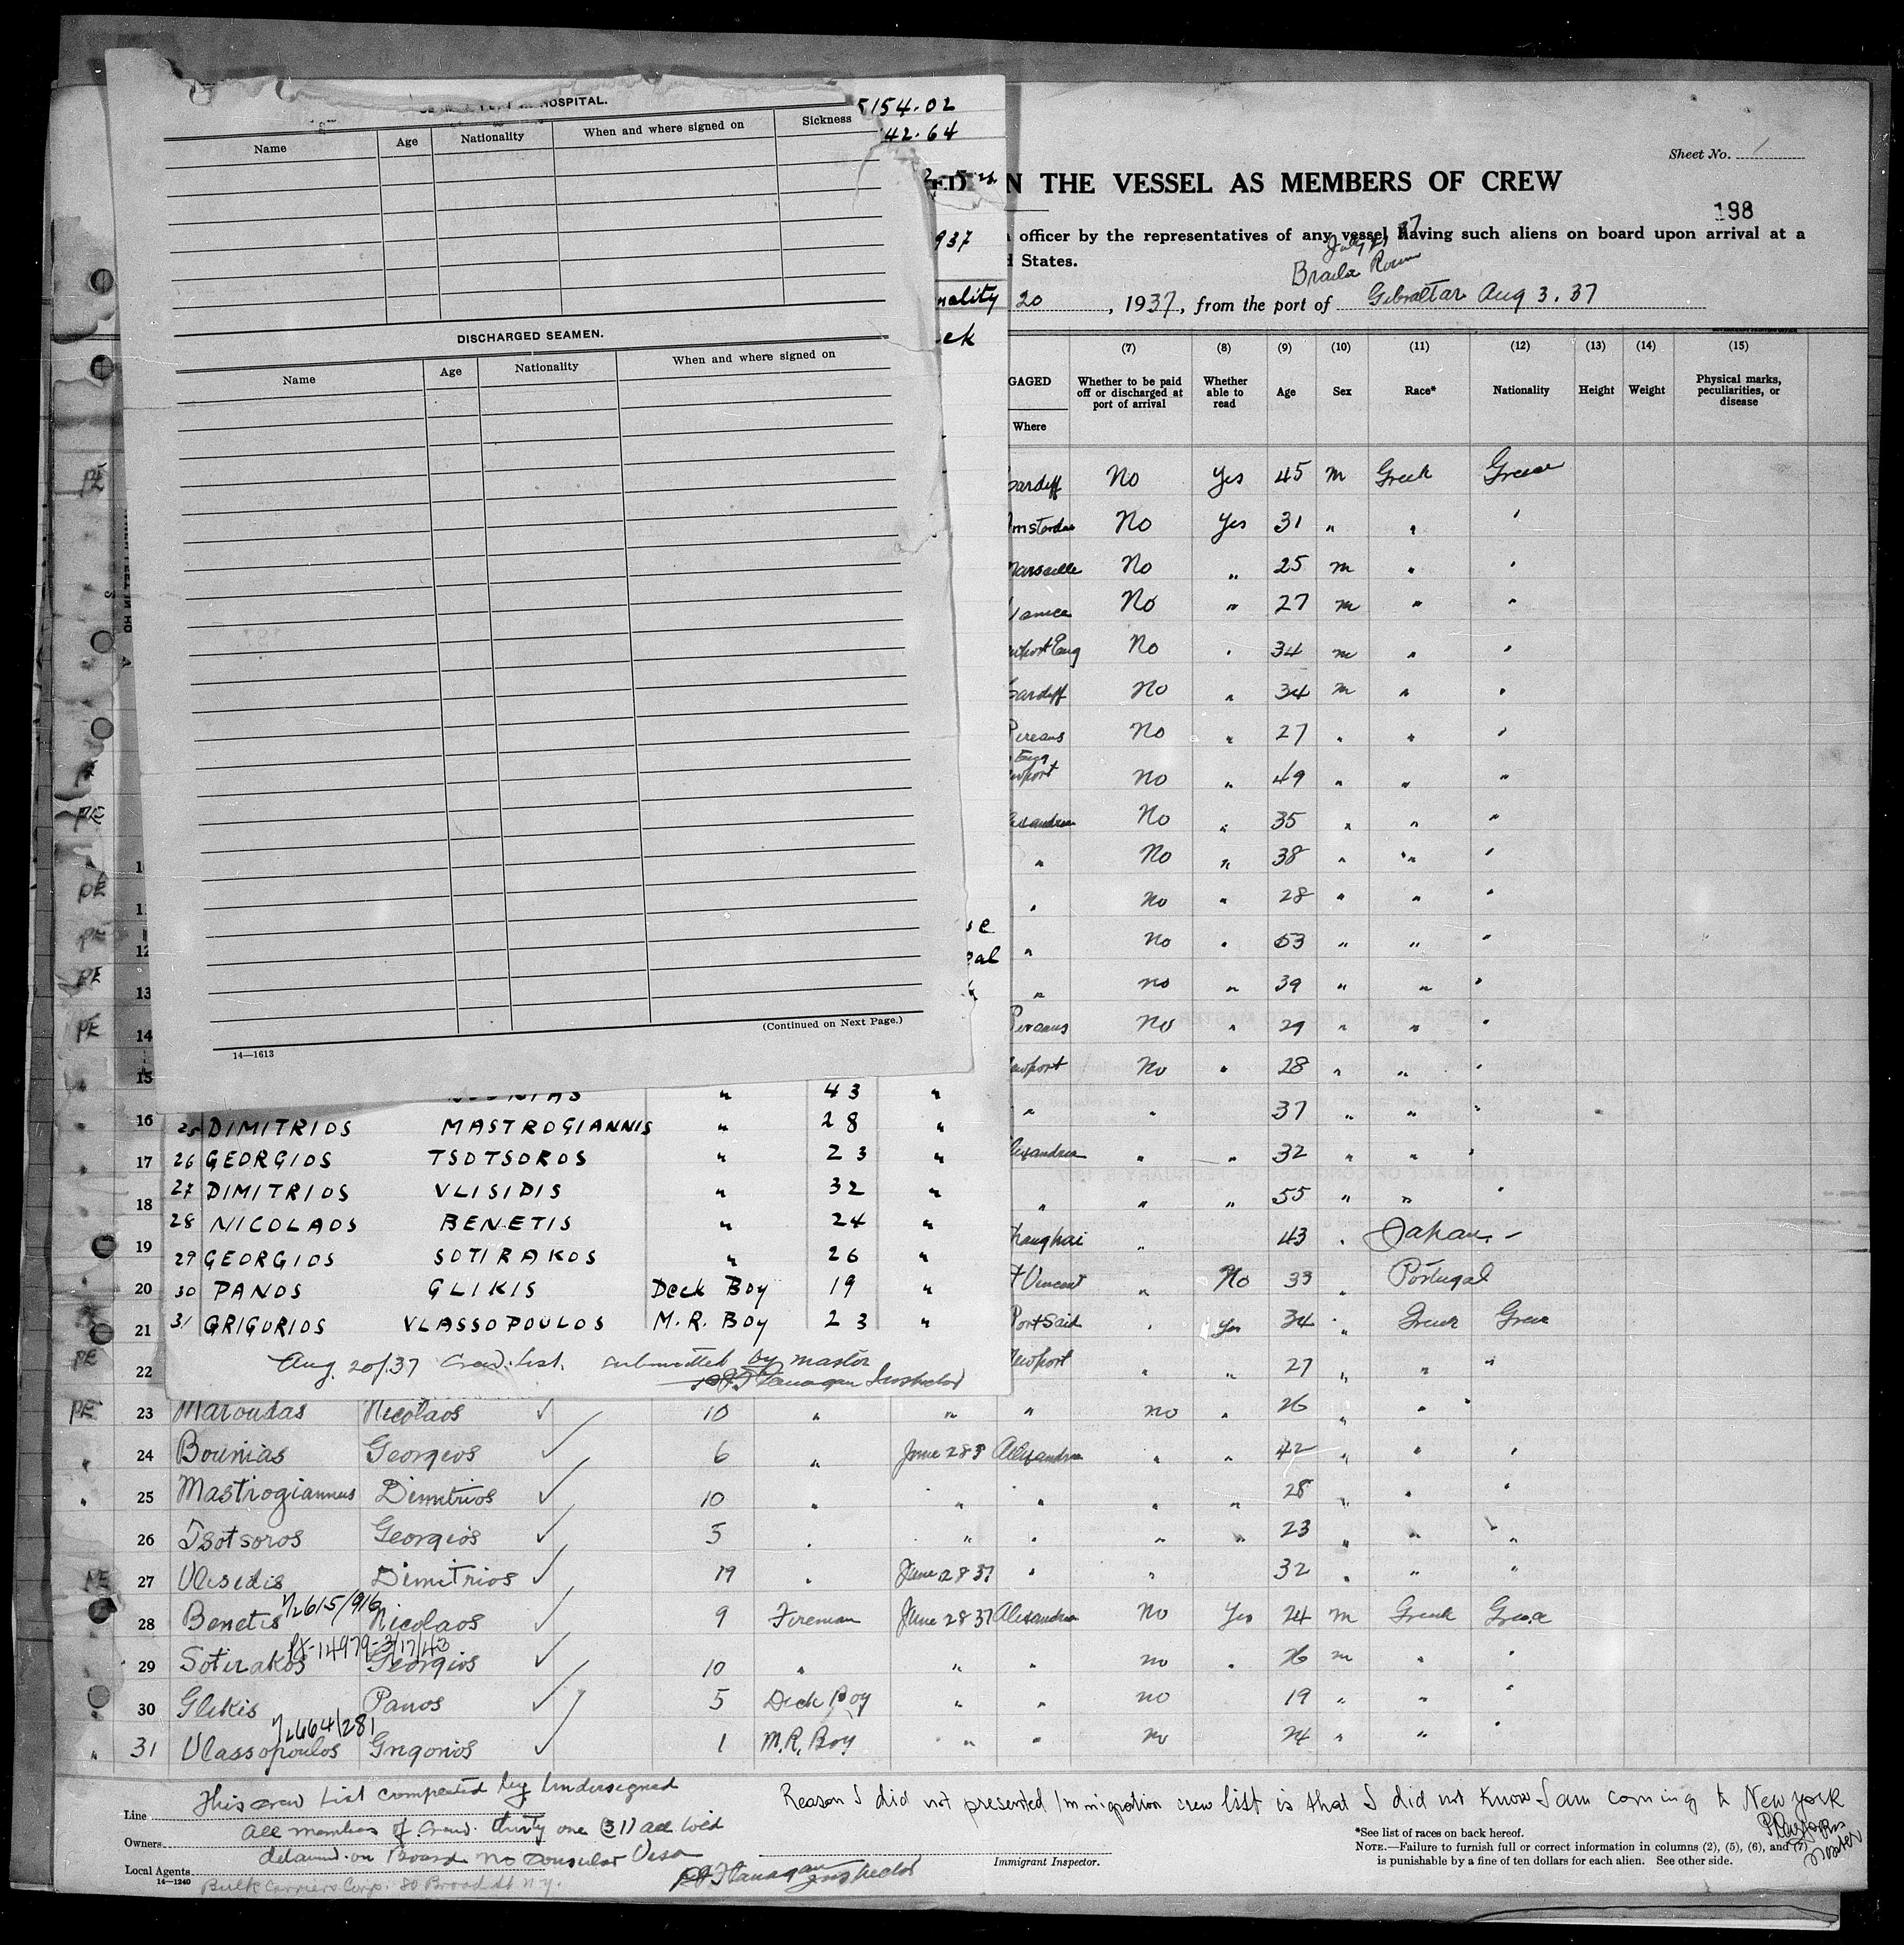 HOSPITAL.
Name Age Nationality When and where signed on Sickness
DISCHARGED SEAMEN.
Name Age Nationality When and where signed on
(Continued on Next Page.)
14—1613
5154.02
42.64
937
nality
ek
Sheet No. 1
N THE VESSEL AS MEMBERS OF CREW
198
officer by the representatives of any vessel having such aliens on board upon arrival at a
States.
Braila Roum
20, 1937, from the port of Gibraltar Aug 3. 37
(7) (8) (9) (10) (11) (12) (13) (14) (15)
GAGED Where
Whether to be paid off or discharged at port of arrival
Whether able to read
Age
Sex
Race*
Nationality
Height
Weight
Physical marks, peculiarities, or disease
Cardiff No Yes 45 m Greek Greece
Amsterdam No Yes 31 " " "
Marseille No " 25 m " "
No " 27 m " "
Newport Eng No " 34 m " "
Cardiff No " 34 m " "
Pireaus No " 27 " " "
Eng
Newport No " 49 " " "
Alexandria No " 35 " " "
" No " 38 " " "
" No " 28 " " "
12 " No " 53 " " "
13 " No " 39 " " "
14 Pireaus No " 29 " " "
15 Newport No " 28 " " "
16 " " 37 " " "
17 Alexandria " " 32 " " "
18 " " " 55 " " "
19 Shanghai " 43 " Japan -
20 St Vincent " No 33 " Portugal
21 Port Said " Yes 34 " Greek Greece
22 Newport " " 27 " " "
" 43 "
25 DIMITRIOS MASTROGIANNIS " 28 "
26 GEORGIOS TSOTSOROS " 23 "
27 DIMITRIOS VLISIDIS " 32 "
28 NICOLAOS BENETIS " 24 "
29 GEORGIOS SOTIRAKOS " 26 "
30 PANOS GLIKIS Deck Boy 19 "
31 GRIGORIOS VLASSOPOULOS M.R. Boy 23 "
Aug. 20/37 Crew List submitted by master
P.J. Flanagan Inspector
23 Maroudas Nicolaos 10 " " " no " 26 " " "
24 Bounias Georgios 6 " June 28 37 Alexandria " " 42 " " "
25 Mastrogiannis Dimitrios 10 " " " " " 28 " " "
26 Tsotsoros Georgios 5 " " " " " 23 " " "
27 Vlisidis Dimitrios 19 " June 28 37 " " 32 " " "
28 Benetis Nicolaos 9 Fireman June 28 37 Alexandria No Yes 24 m Greek Greece
29 Sotirakos Georgios 10 " " " no " 26 m " "
30 Glikis Panos 5 Deck Boy " " no 19 " " "
31 Vlassopoulos Grigorios 1 M.R. Boy " " no 24 " " "
This crew list completed by undersigned
all members of crew thirty one (31) all told
detained on Board no consular Visa
P.J. Flanagan Inspector
Line
Owners
Local Agents
14—1240
Bulk Carriers Corp. 80 Broad St N.Y.
Reason I did not presented Immigration crew list is that I did not know I am coming to New York
Master
Immigrant Inspector.
*See list of races on back hereof.
NOTE.—Failure to furnish full or correct information in columns (2), (5), (6), and (7)
is punishable by a fine of ten dollars for each alien. See other side.